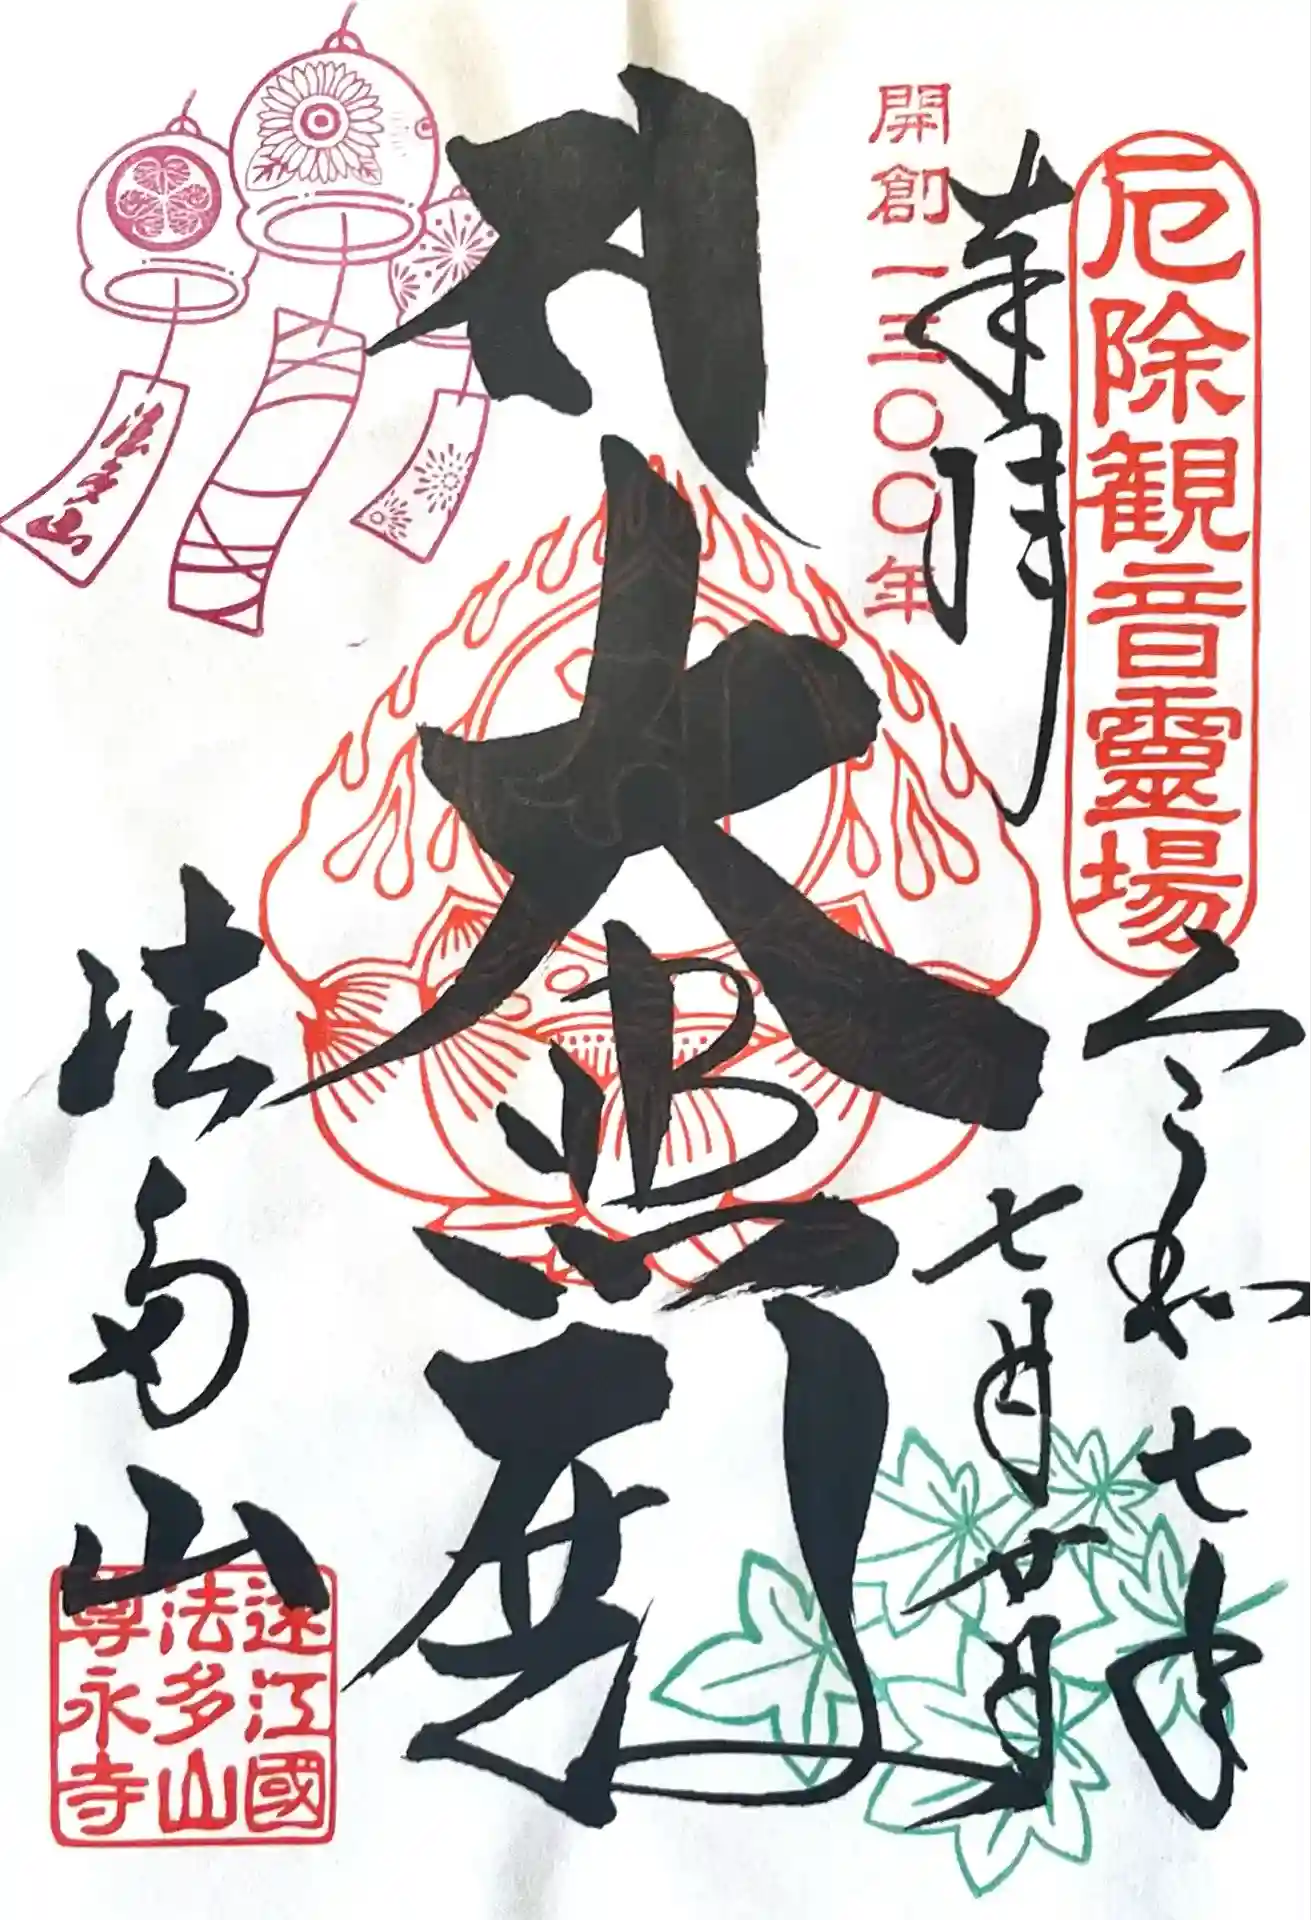 厄除観音霊場
令和七年
奉拝
七月廿日
開創一三〇〇年
大悲殿
法多山
法多山
遠江國
法多山
尊永寺